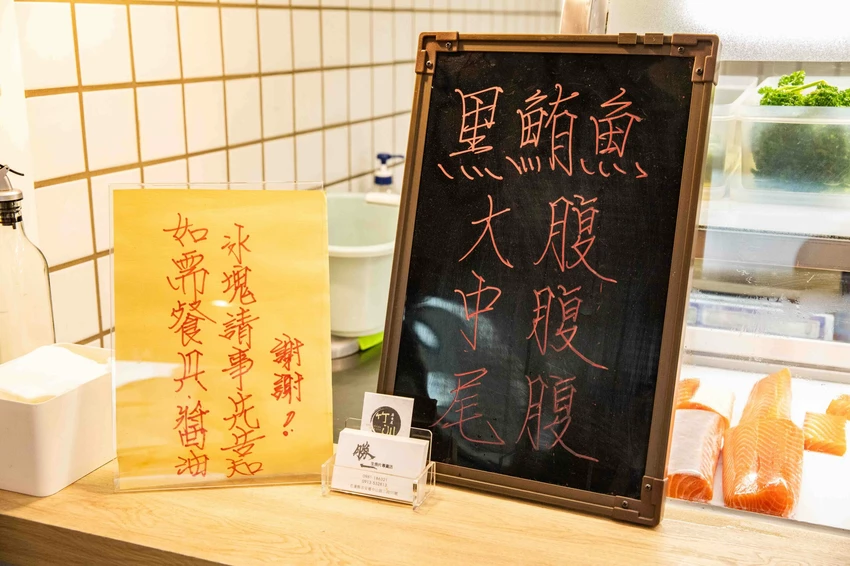 如需餐具、醬油
冰塊請事先告知
謝謝!
黑鮪魚
大腹
中腹
尾腹
竹
勝